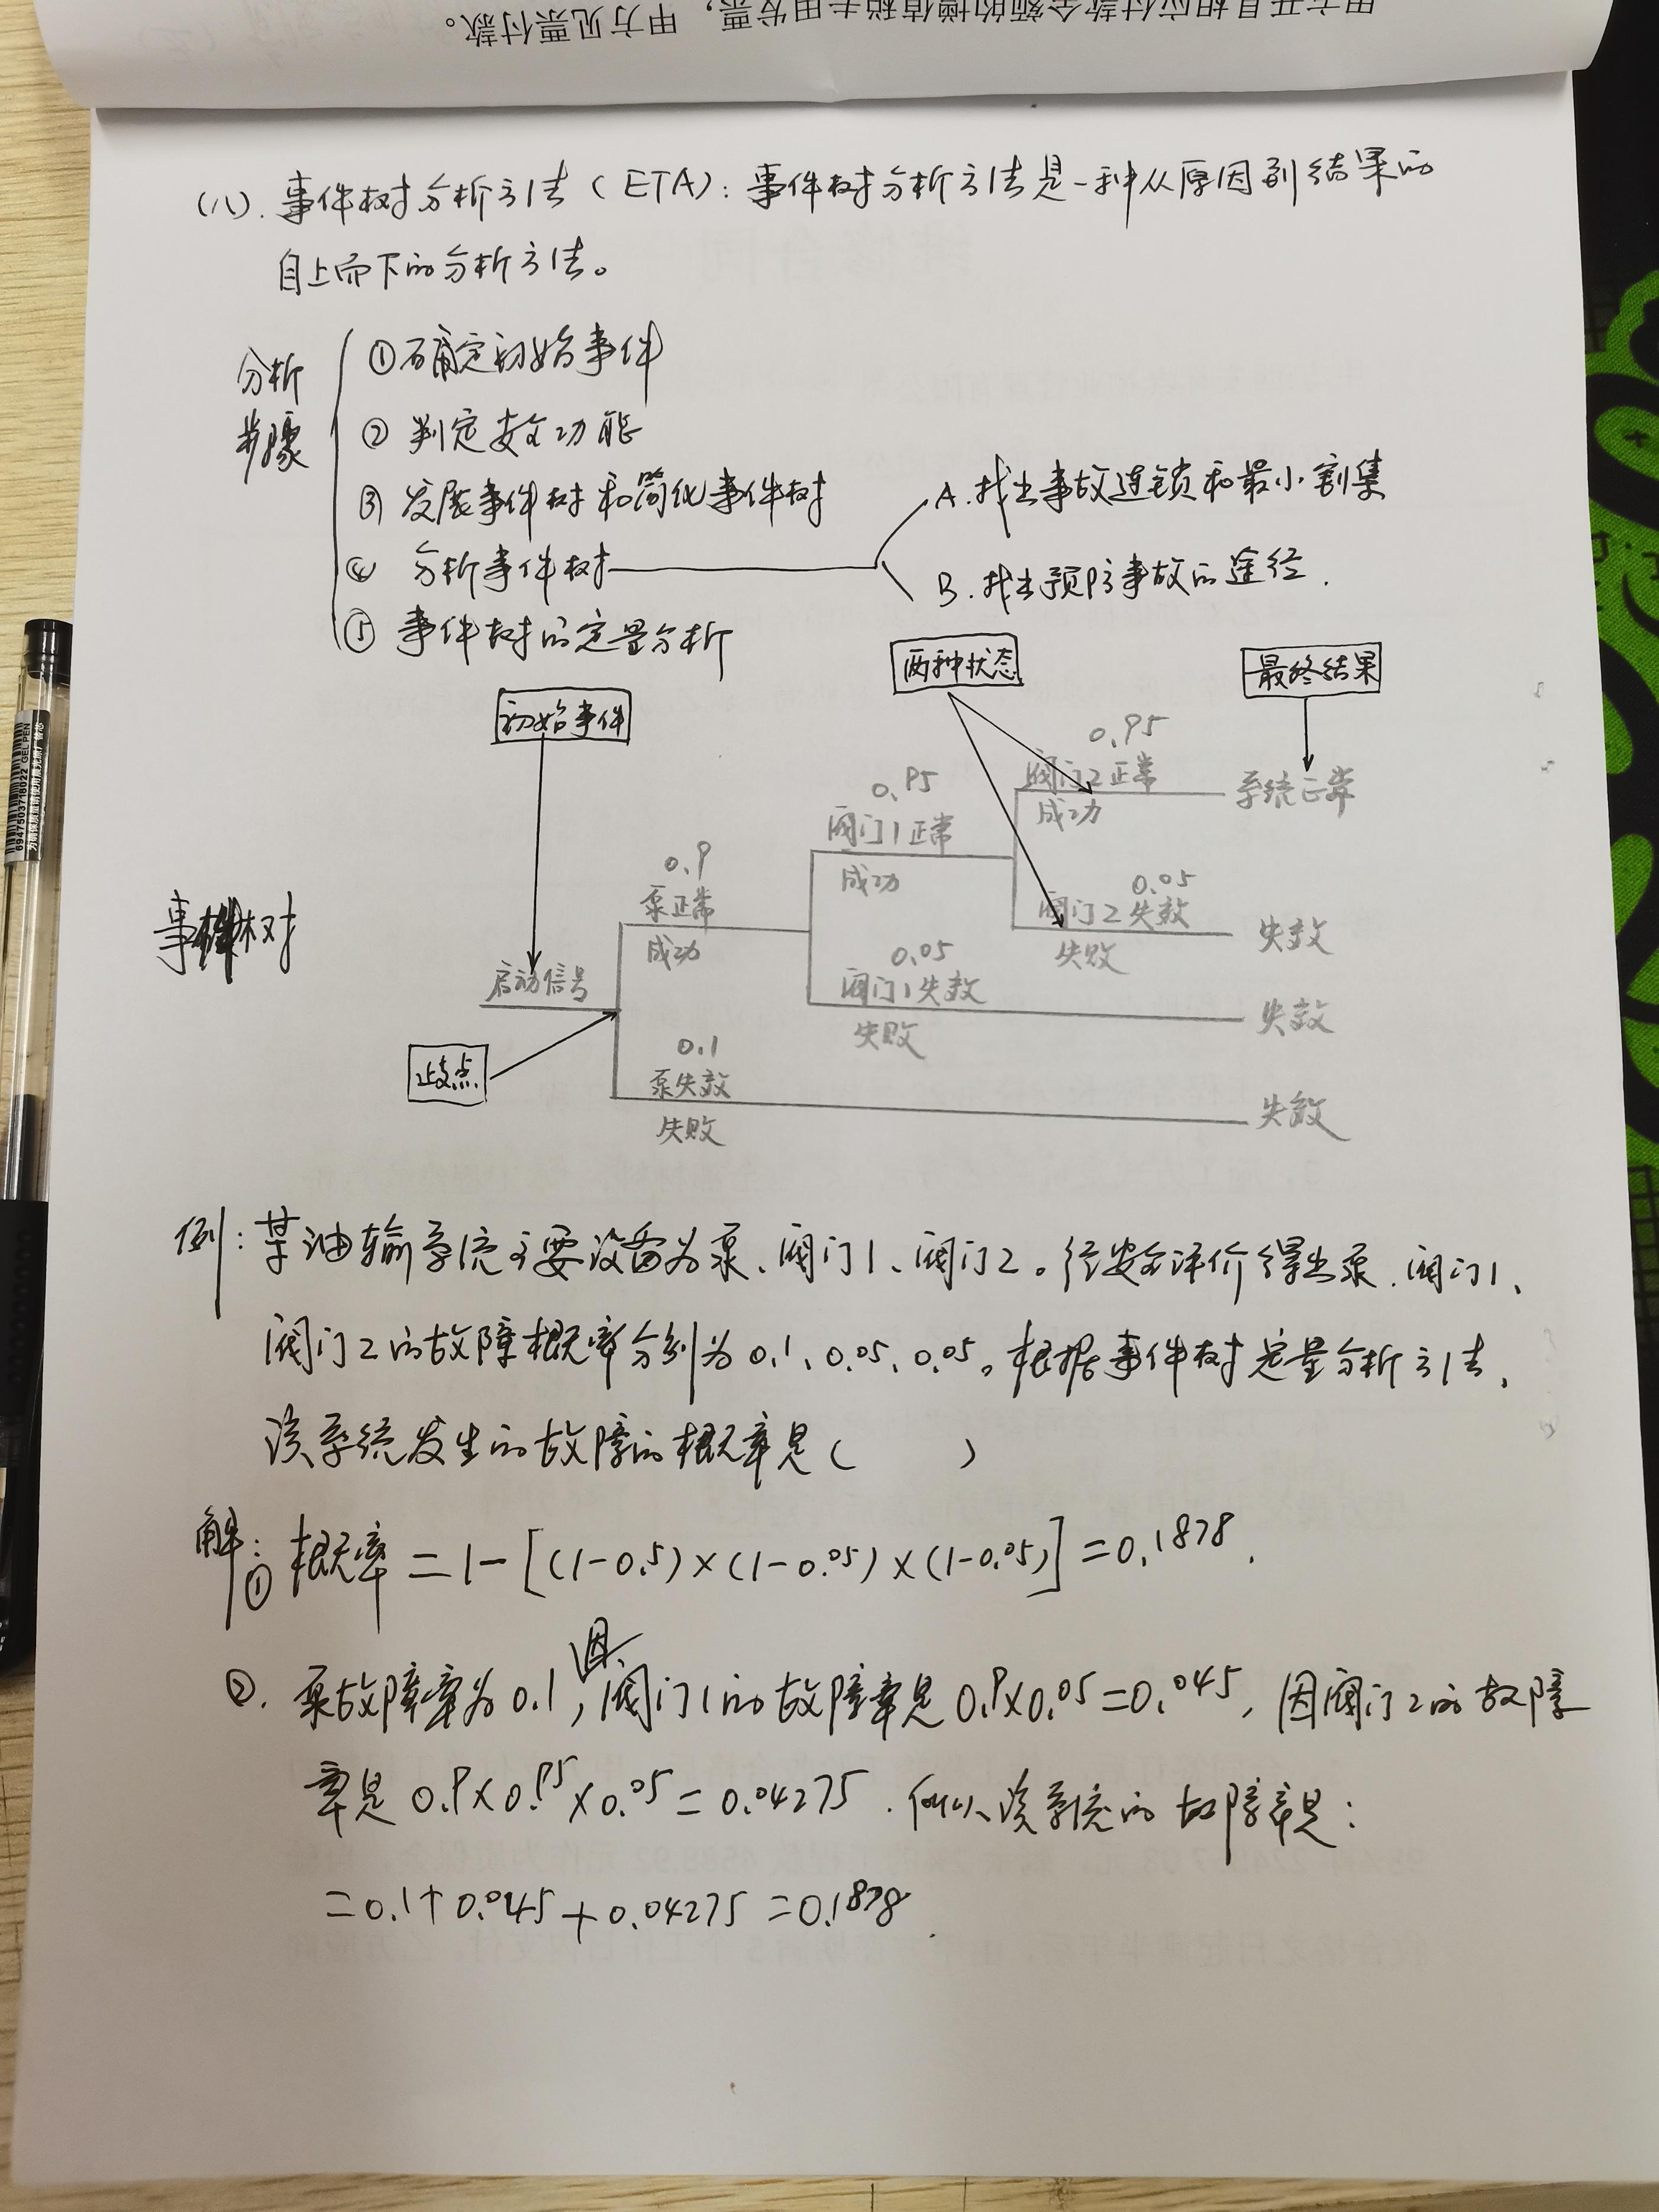 甲方开具相应付款金额的增值税专用发票，甲方见票付款。
(八). 事件树分析方法（ETA）：事件树分析方法是一种从原因到结果的
自上而下的分析方法。
分析
步骤
①确定初始事件
② 判定安全功能
③ 发展事件树和简化事件树
④ 分析事件树
A.找出事故连锁和最小割集
B.找出预防事故的途径.
⑤ 事件树的定量分析
两种状态
最终结果
初始事件
0.95
阀门2正常
成功
系统正常
0.95
阀门1正常
成功
0.9
泵正常
成功
0.05
阀门2失效
失败
失效
事件树
启动信号
0.05
阀门1失效
失败
失效
歧点
0.1
泵失效
失败
失效
例：某油输系统主要设备为泵、阀门1、阀门2。经安全评价得出泵、阀门1、
阀门2的故障概率分别为0.1、0.05、0.05。根据事件树定量分析方法，
该系统发生的故障的概率是（ ）
解：① 概率 = 1-[(1-0.5)×(1-0.05)×(1-0.05)] = 0.1878.
②. 泵故障率为0.1，因阀门1的故障率是0.9×0.05=0.045，因阀门2的故障
率是0.9×0.95×0.05=0.04275. 所以该系统的故障率是：
=0.1+0.045+0.04275=0.1878.
GEL PEN
6947503716022